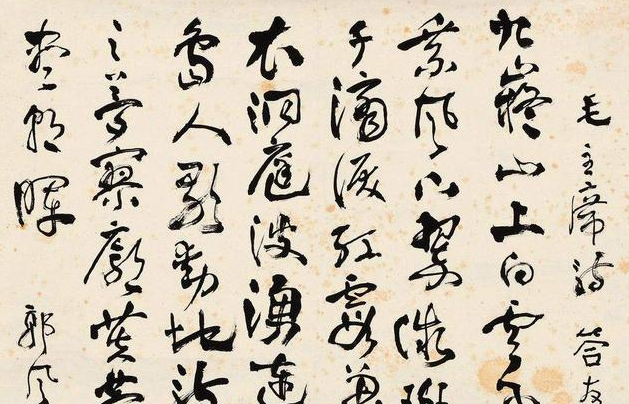 毛主席詩 答友
九嶷山上白雲飛
乘風下翠微斑
千滴淚紅霞萬
衣洞庭波湧連
島人歌動地詩
之夢寥廓芙蓉
盡朝暉 郭風